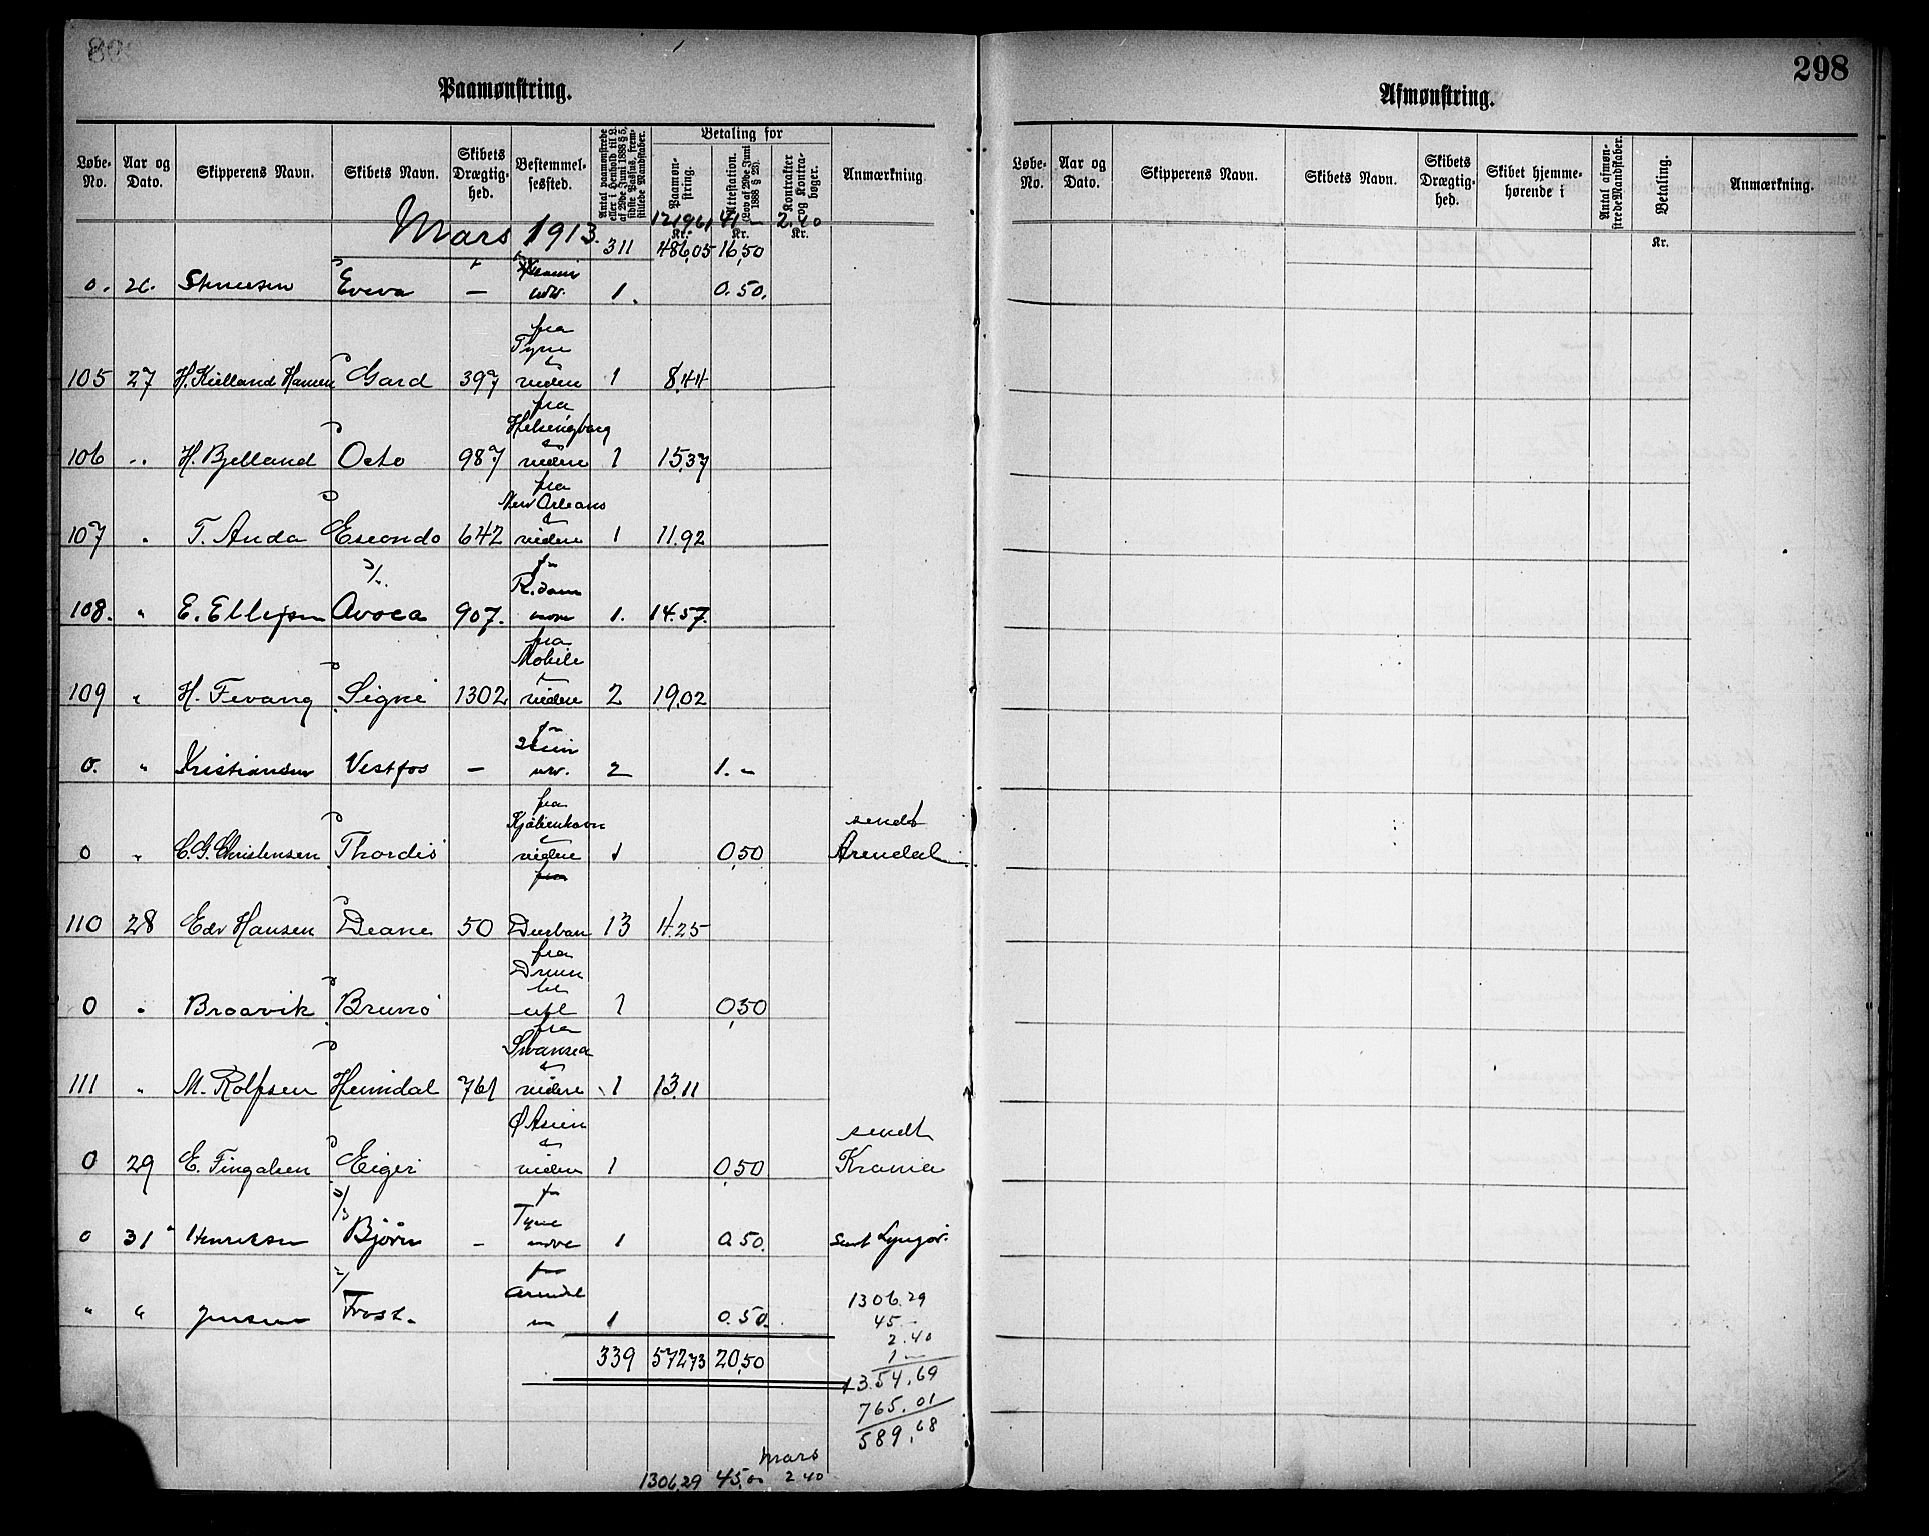 298
Paamønstring.
Løbe-No. | Aar og Dato. | Skipperens Navn. | Skibets Navn. | Skibets Drægtig-hed. | Bestemmel-sessted. | Antal paamønstrede eller i Henhold til L. af 29de Juni 1888 § 5, sidste Passus, frem-stillede Mandskaber. | Betaling for | Anmærkning.
Paamøn-string. | Attestation. (Lov af 29de Juni 1888 § 26). | Kontrakter og Kontra-bøger.
Mars 1913. 1219.61 41 - 2.40
Kr. Kr. Kr.
311 486,05 16,50
0. 26. Evera — 1. 0.50.
fra
Tyne
105 27 H. Kielland Hansen Gard 397 videre 1 8,44
fra
Helsingborg
106 " H. Bjelland Octo 987 videre 1 15,37
fra
New Orleans
107 " T. Anda Escondo 642 videre 1 11.92
fra
R.dam
108. " E. Ellefsen Avoca 907. 1. 14.57.
fra
Mobile
109 " H. Fevang Signe 1302 videre 2 19,02
0. " Kristiansen Vestfos — 2 1. -
fra
Kjøbenhavn sendt
0 " C. G. Christensen Thordis videre 1 0,50 Arendal
fra
110 28 Edv Hansen Deane 50 Durban 13 4.25
fra
Dramm
til
0 " Braavik Bruno utl 1 0,50
fra
Swansea
111 " M. Rolfsen Heimdal 761 videre 1 13.11
Ø Asien sendt
0 29 E. Fingalsen Eiger videre 1 0,50 Krania
fr
Tyne
0 31 Henriksen Bjørn - 1 0.50. sent Lyngør.
fra
Arendal 1306.29
" " Jensen Frost. 1 0.50. 45.-
2.40
1 -
339 572,73 20,50
1354,69
765.01
589,68
Mars
1306,29 45,00 2 40
298
Afmønstring.
Løbe-No. | Aar og Dato. | Skipperens Navn. | Skibets Navn. | Skibets Drægtig-hed. | Skibet hjemme-hørende i | Antal afmøn-strede Mandskaber. | Betaling. | Anmærkning.
Kr.